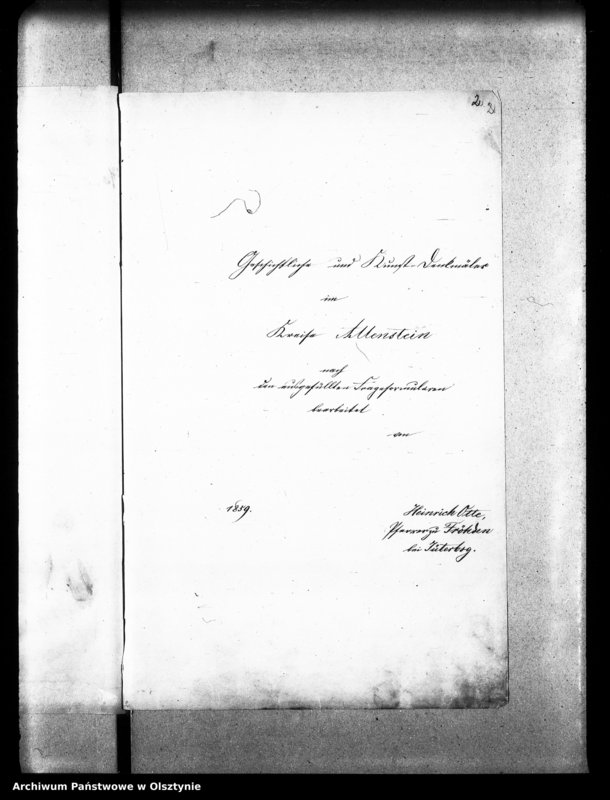 2. 2.
Geschichtliche und Kunst-Denkmäler
im
Kreise Allenstein
nach
den ausgefüllten Frageformularen
bearbeitet
von
1859.
Heinrich Otte,
Pfarrer zu Fröhden
bei Jüterbog.
Archiwum Państwowe w Olsztynie